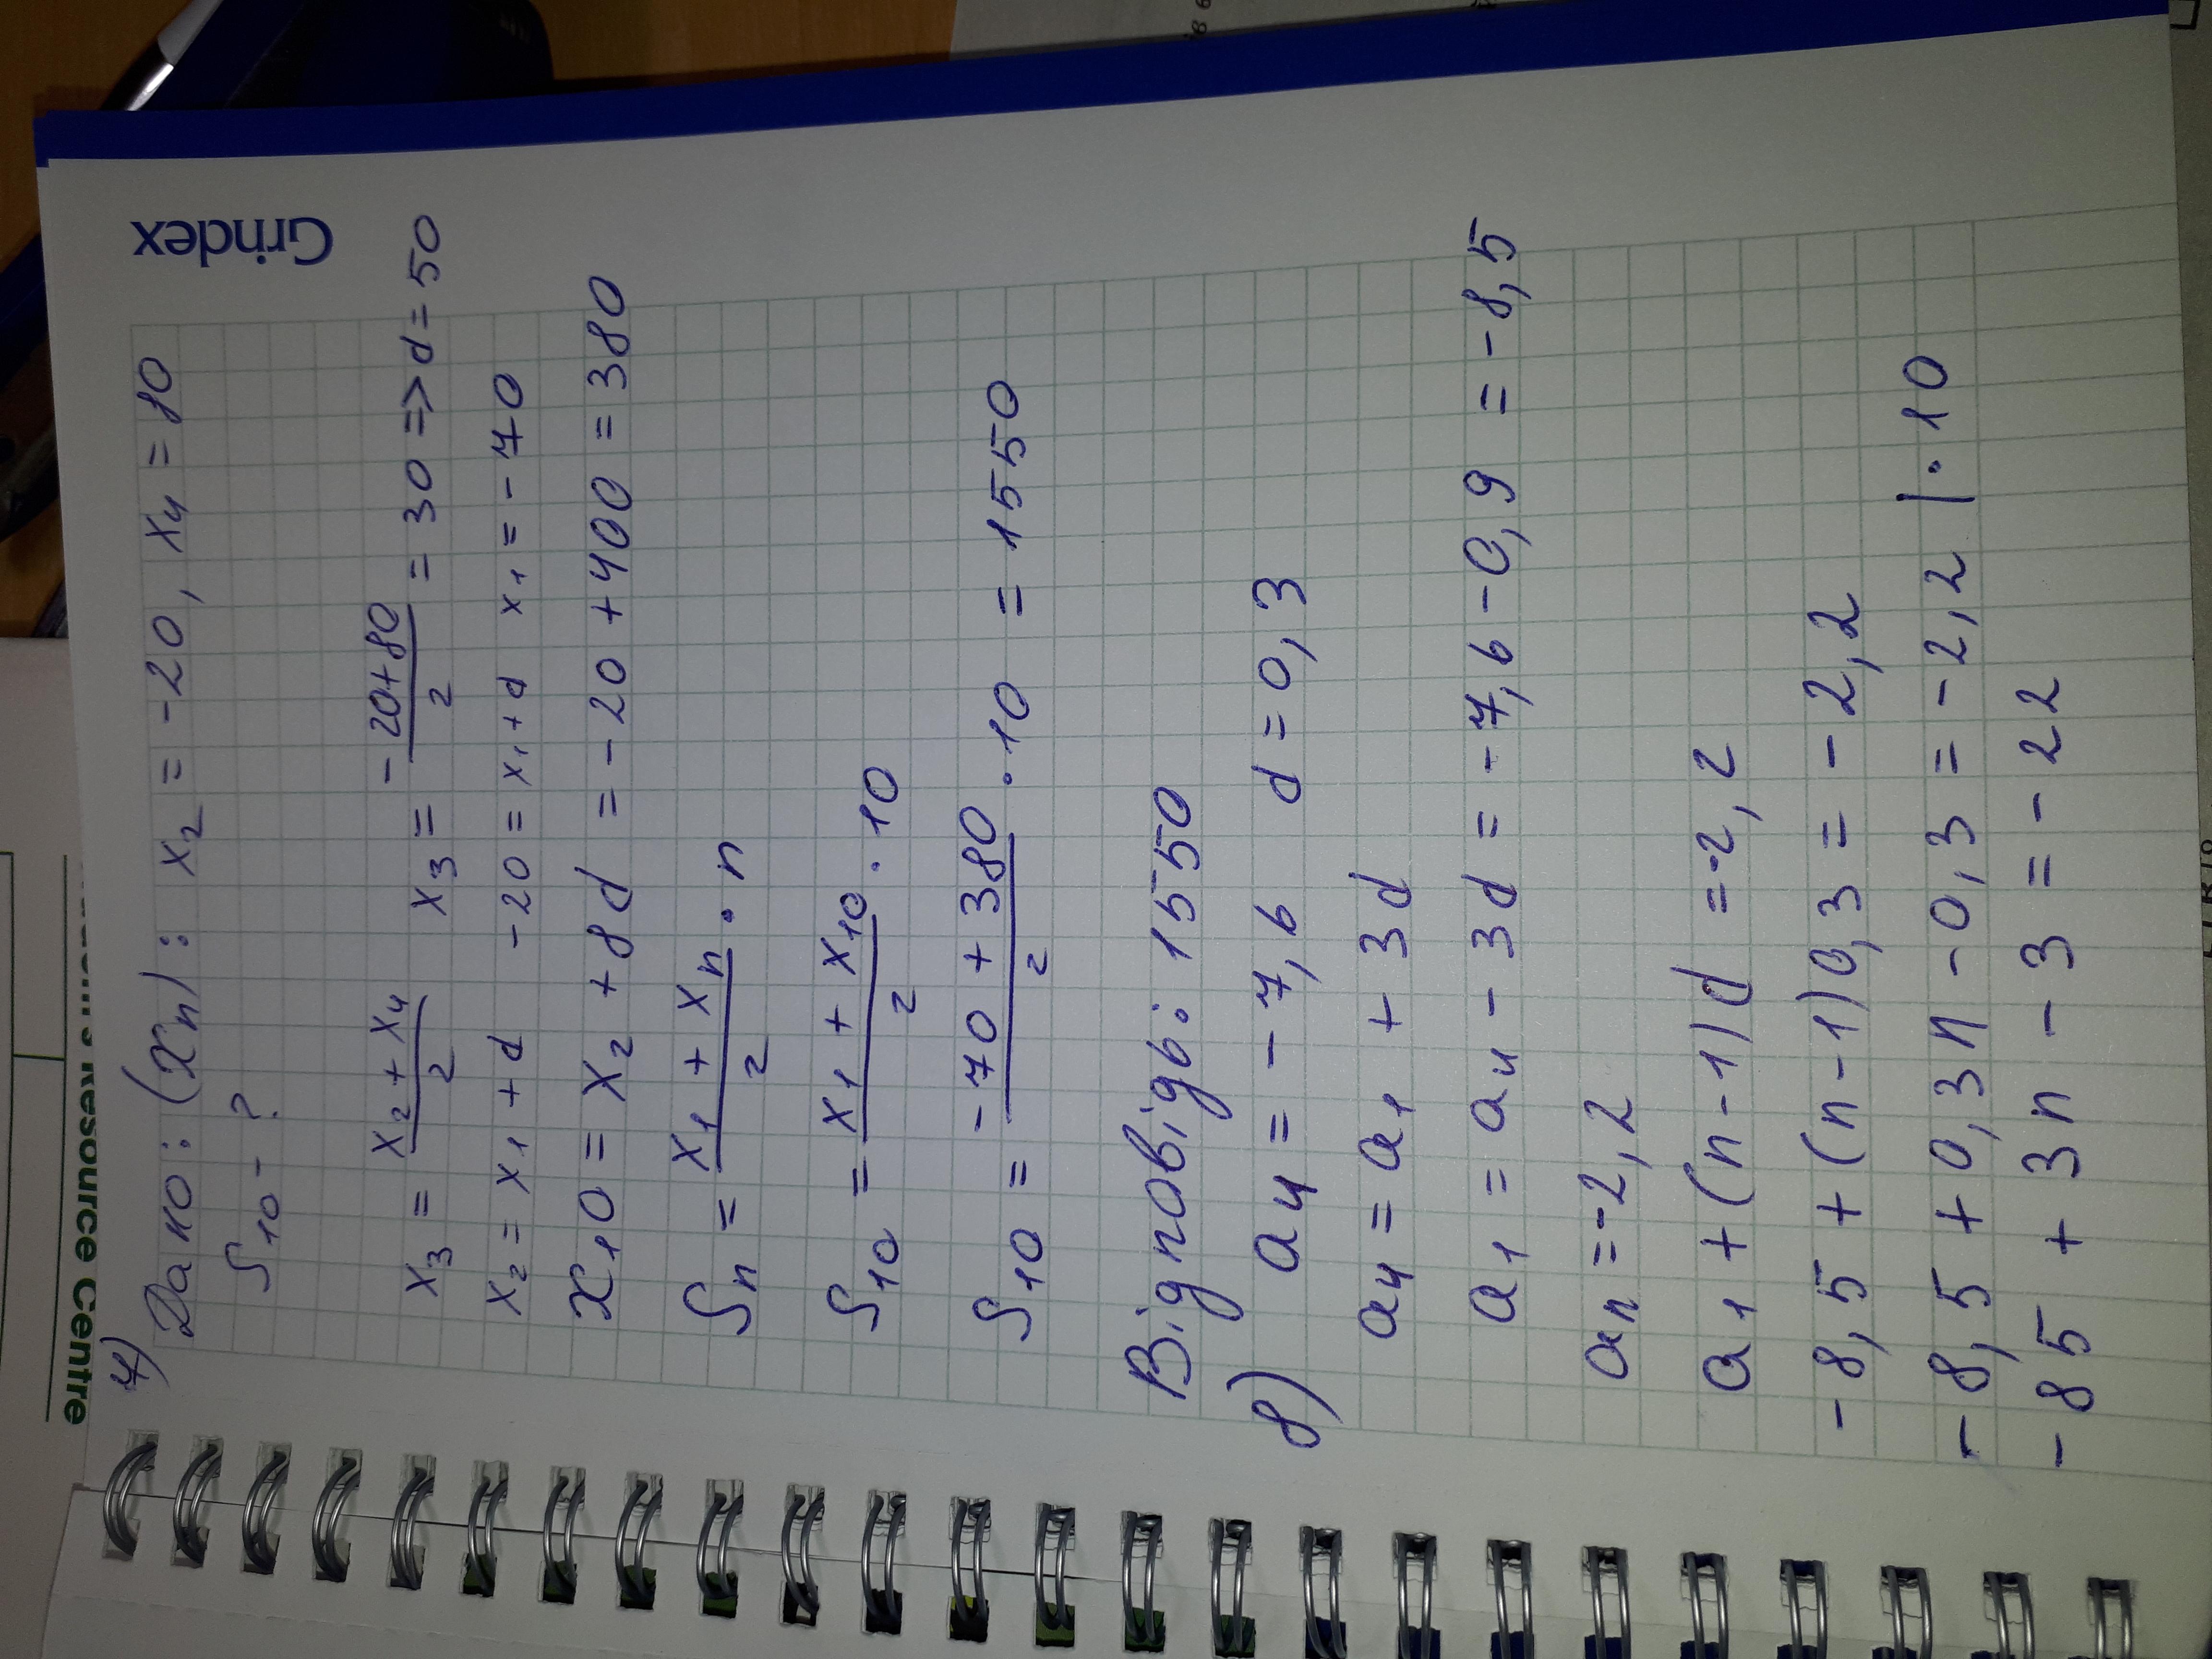 Grindex
7)
Дано: (xₙ): x₂ = -20, x₄ = 80
S₁₀ - ?
x₃ = (x₂ + x₄)/2 x₃ = (-20+80)/2 = 30 => d = 50
x₂ = x₁ + d -20 = x₁ + d x₁ = -70
x₁₀ = x₂ + 8d = -20 + 400 = 380
Sₙ = (x₁ + xₙ)/2 · n
S₁₀ = (x₁ + x₁₀)/2 · 10
S₁₀ = (-70 + 380)/2 · 10 = 1550
Відповідь: 1550
8) a₄ = -7,6 d = 0,3
a₄ = a₁ + 3d
a₁ = a₄ - 3d = -7,6 - 0,9 = -8,5
aₙ = -2,2
a₁ + (n-1)d = -2,2
-8,5 + (n-1)0,3 = -2,2
-8,5 + 0,3n - 0,3 = -2,2 | · 10
-85 + 3n - 3 = -22
Resource Centre